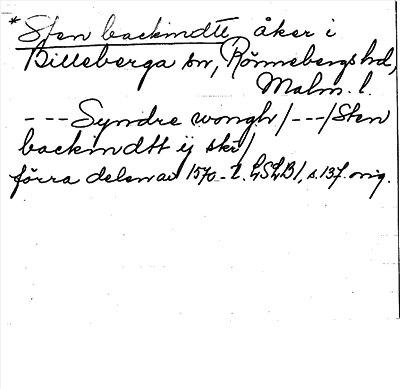 * Sten backindtt, åker i
Billeberga sn, Rönnebergs hd,
Malm. l.
--- Syndre wongh / --- / Sten
backindtt ij skr /
förra delen av 1570-t. LSLB1, s. 137. orig.